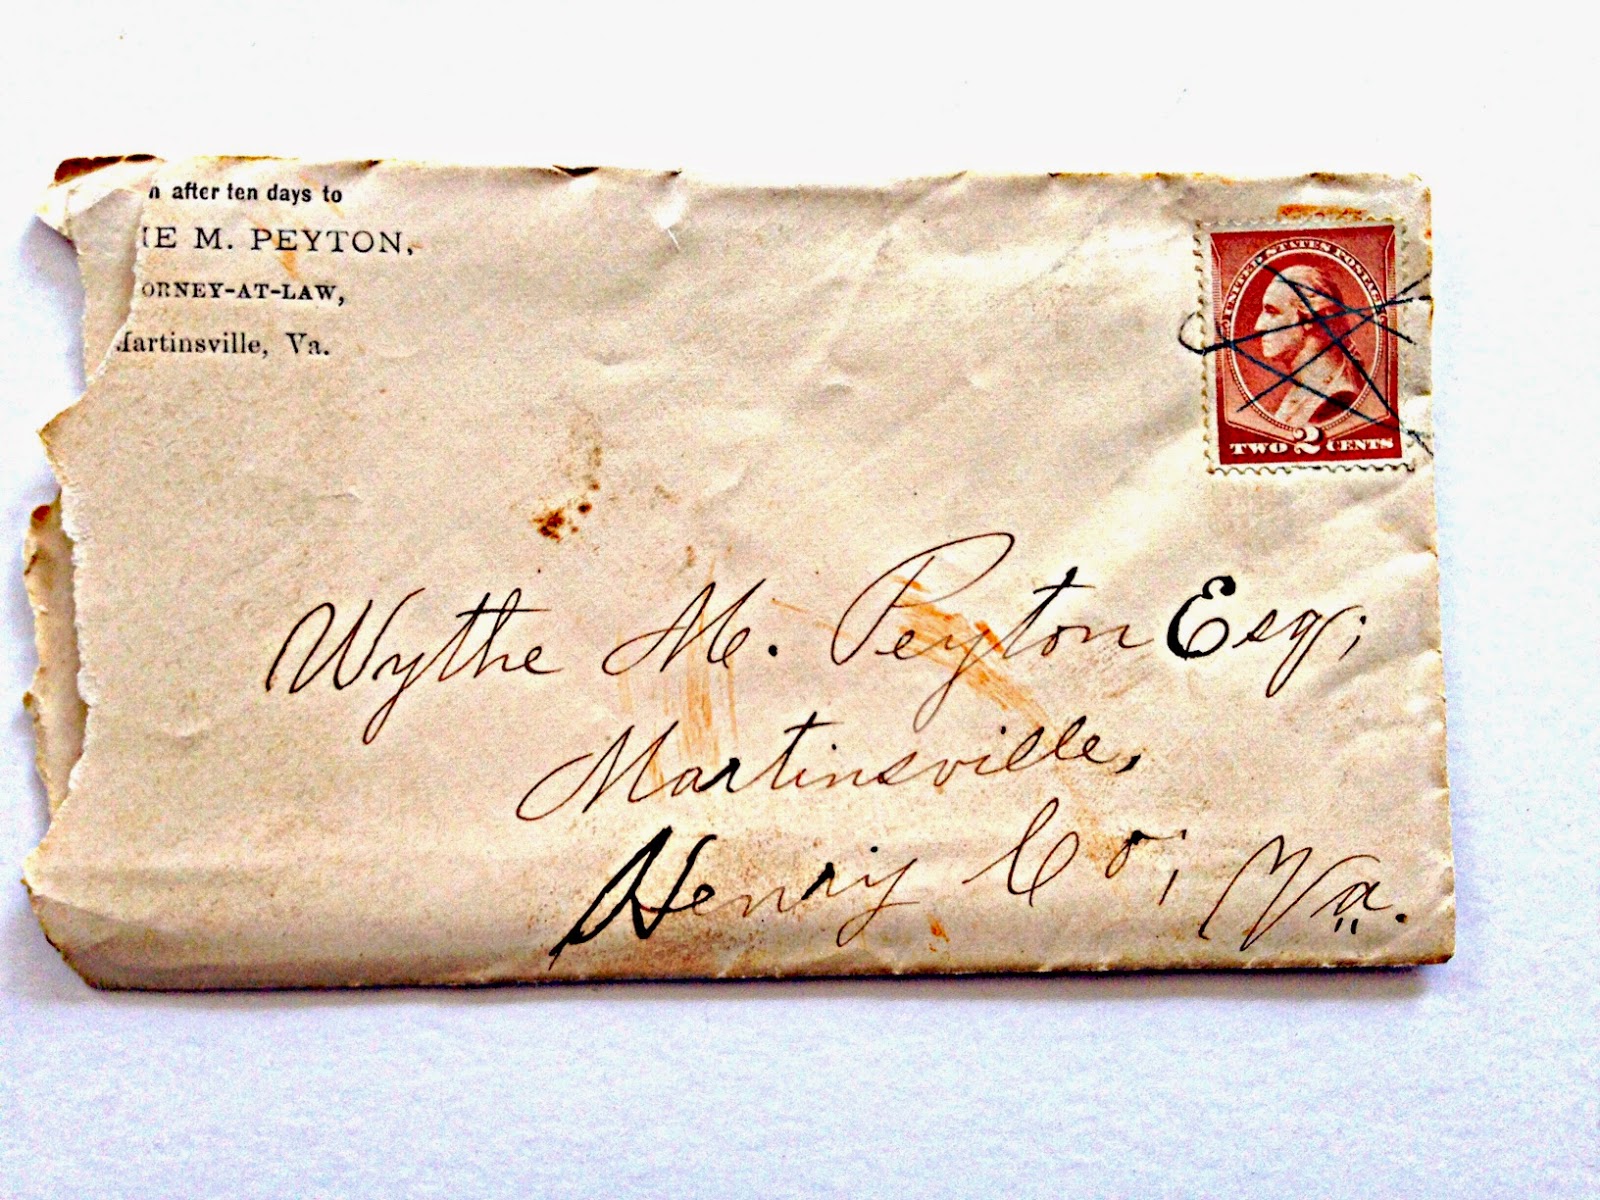 n after ten days to
IE M. PEYTON,
ORNEY-AT-LAW,
Martinsville, Va.
UNITED STATES POSTAGE
TWO 2 CENTS
Wythe M. Peyton Esq;
Martinsville,
Henry Co; Va.